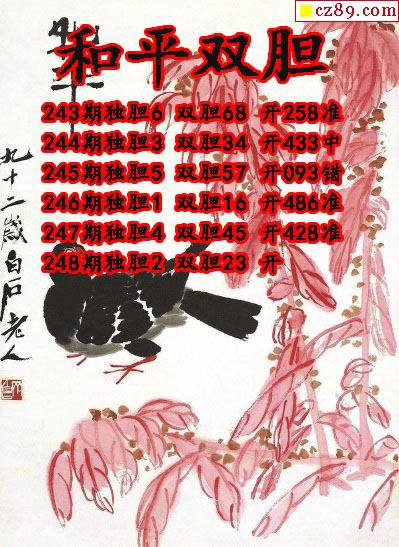 cz89.com
和平双胆
243期独胆6 双胆68 开258准
244期独胆3 双胆34 开433中
245期独胆5 双胆57 开093错
246期独胆1 双胆16 开486准
247期独胆4 双胆45 开428准
248期独胆2 双胆23 开
和平
九十二岁白石老人